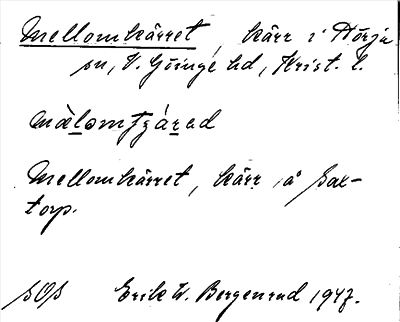 Mellomkärret, kärr i Hörja
sn, V. Göinge hd, Krist. l.
Mellomkärret, kärr å Sax-
torp.
SOS Erik W. Bergenrud 1947.